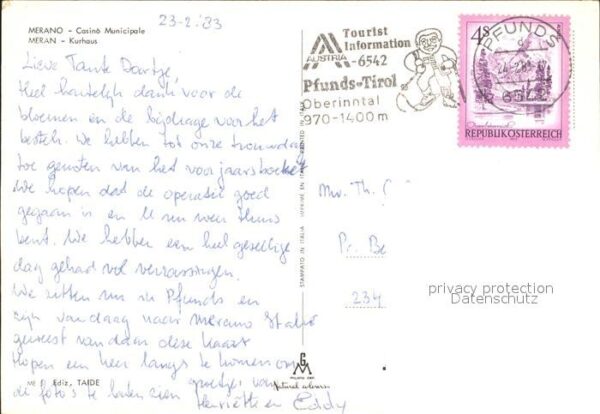 23-2-'83
MERANO - Casinò Municipale
MERAN - Kurhaus
Lieve Tante Dortje,
Heel hartelijk dank voor de
bloemen en de bijdrage voor het
bestek. We hebben tot onze trouwdag
toe genoten van het voorjaarsboeket
We hopen dat de operatie goed
gegaan is en U nu weer thuis
bent. We hebben een heel gezellige
dag gehad vol verrassingen.
We zitten nu in Pfunds en
zijn vandaag naar Merano Italië
geweest vandaar deze kaart
Hopen een keer langs te komen om
de foto's te laten zien groetjes van
Henriëtte en Eddy
Ediz. TAIDE
STAMPATO IN ITALIA
IMPRIMÉ EN ITALIE
PRINTED IN ITALY
Tourist
Information
AUSTRIA -6542
Pfunds-Tirol
Oberinntal
970-1400m
PFUNDS
6542
4S
REPUBLIK ÖSTERREICH
Mw. Th. C
234
privacy protection
Datenschutz